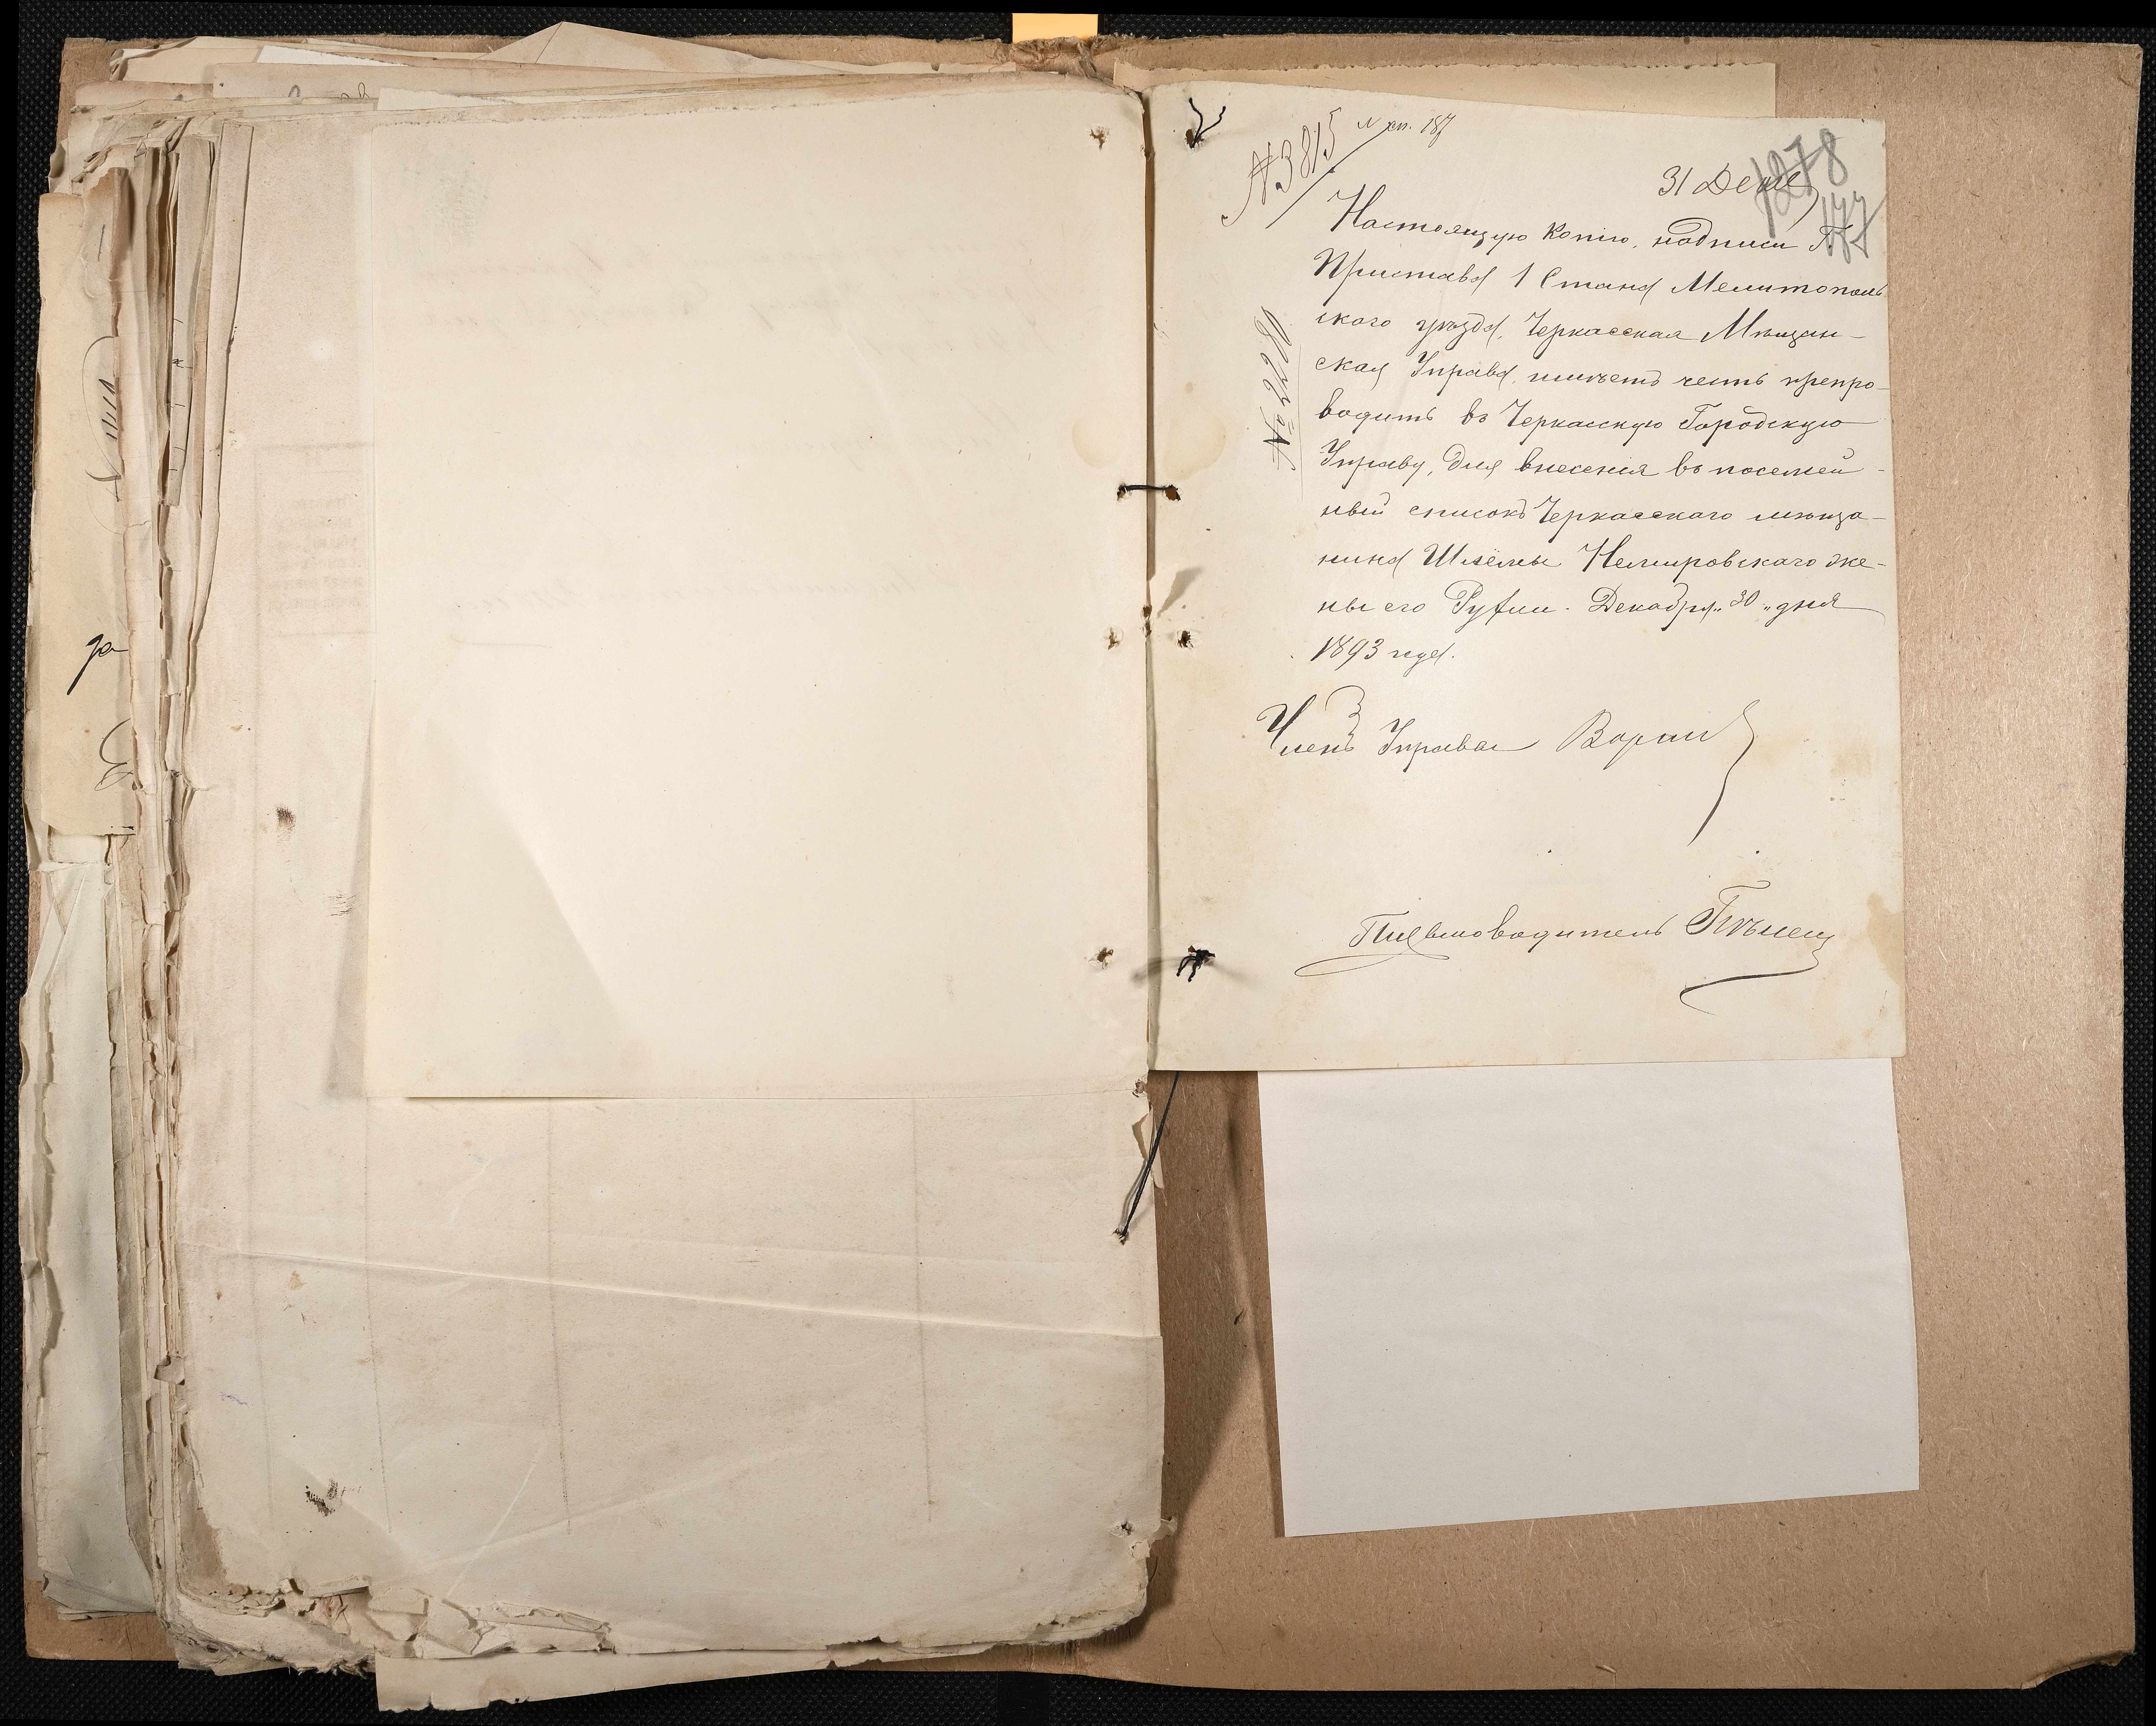 № 3815
№ сп. 187
31 Дек
1878
177
№ 2280
Настоящую копію надписи Г.
Пристава 1 Стана Мелитополь
скаго уѣзда, Черкасская Мѣщан-
ская Управа имѣетъ честь препро-
водить въ Черкасскую Городскую
Управу, для внесенія въ посемей-
ный списокъ Черкасскаго мѣща-
нина Шлемы Немировскаго же-
ны его Руфи. Декабря „30„ дня
1893 года.
Членъ Управы
Письмоводитель
да